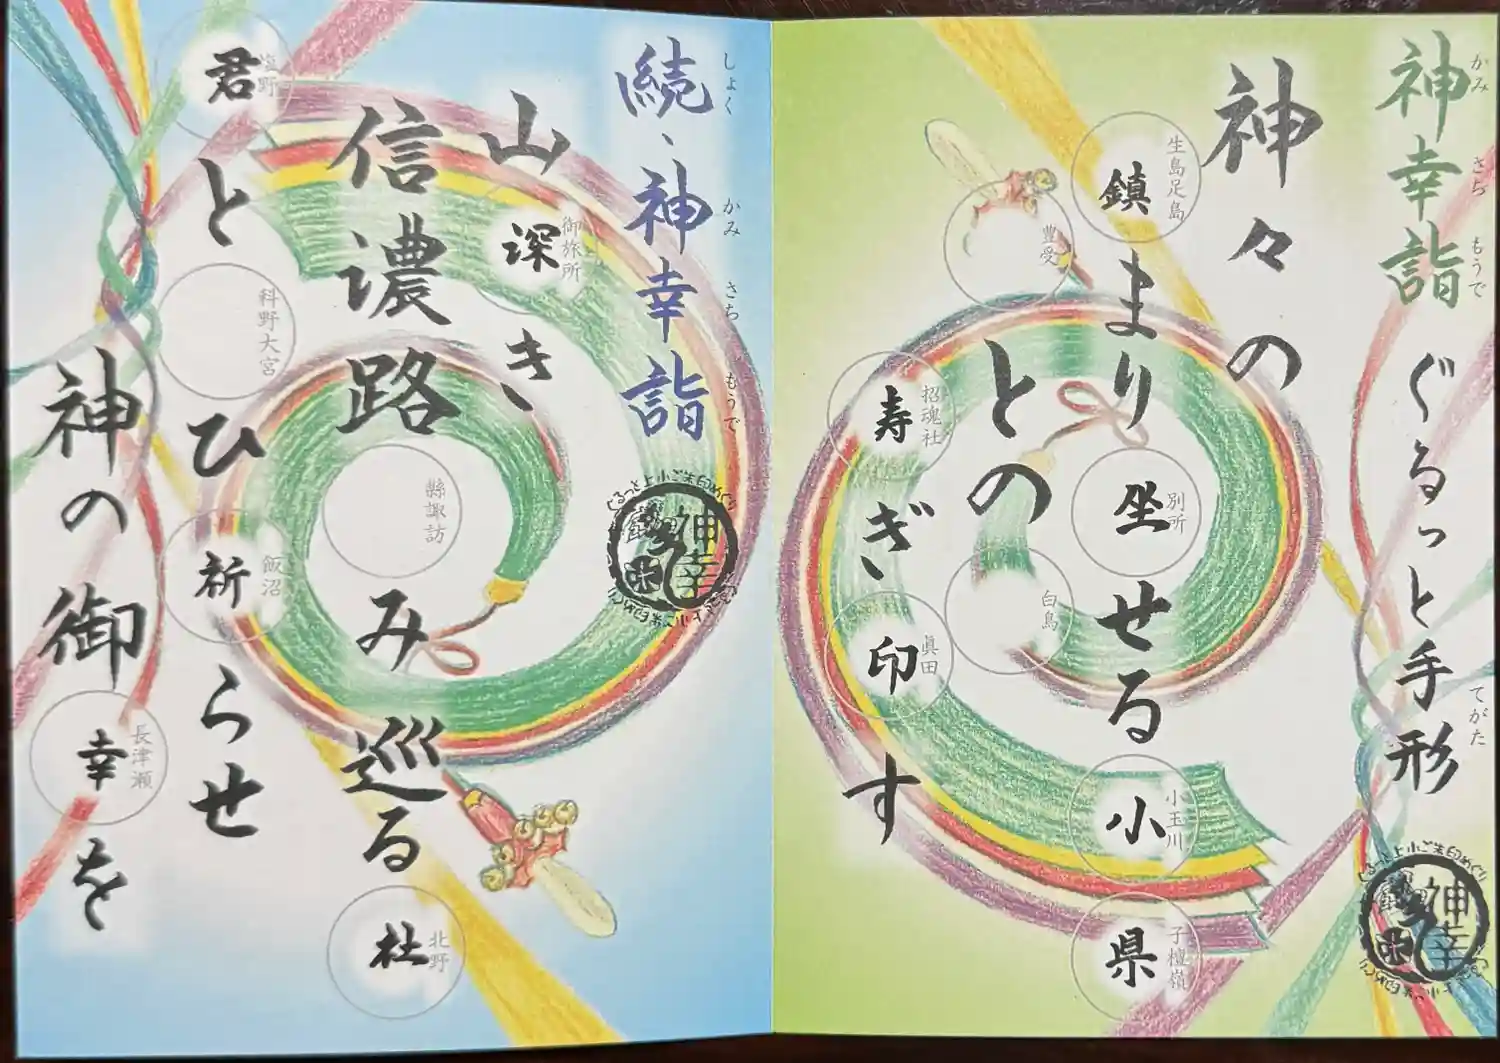 神幸詣 ぐるっと手形
かみ さち もうで
てがた
神々の
鎮まり坐せる小県
生島足島
別所
小玉川
子檀嶺
との
豊受
白鳥
寿ぎ印す
招魂社
眞田
続、神幸詣
しょく かみ さち もうで
山深き
御旅所
信濃路 み巡る杜
縣諏訪
北野
君と ひ祈らせ
塩野
科野大宮
飯沼
神の御幸を
長津瀬
ぐるっと上小ご朱印めぐり
神幸
ぐるっと上小ご朱印めぐり
神幸